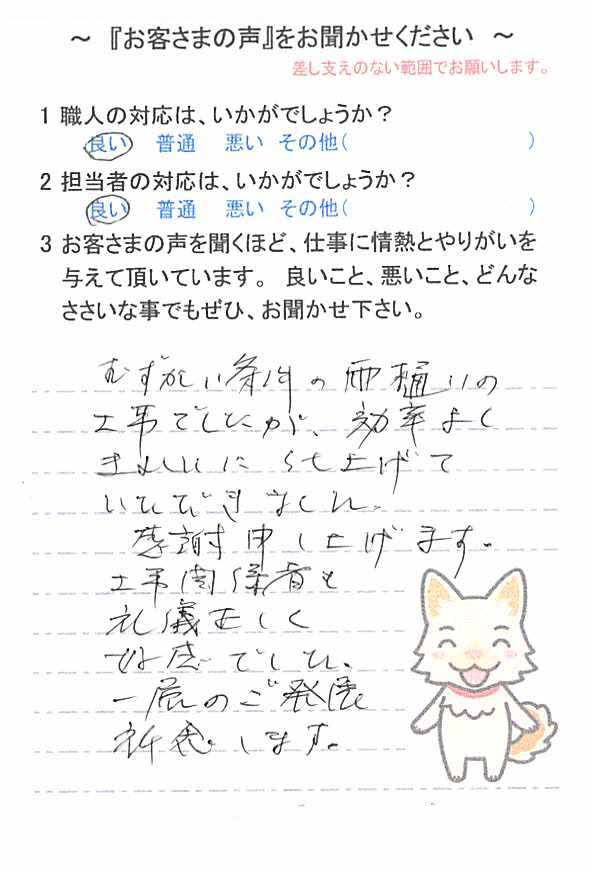 ～ 『お客さまの声』をお聞かせください ～
差し支えのない範囲でお願いします。
1 職人の対応は、いかがでしょうか？
良い 普通 悪い その他( )
2 担当者の対応は、いかがでしょうか？
良い 普通 悪い その他( )
3 お客さまの声を聞くほど、仕事に情熱とやりがいを
与えて頂いています。 良いこと、悪いこと、どんな
ささいな事でもぜひ、お聞かせ下さい。
むずかしい条件の雨樋いの
工事でしたが、効率よく
きれいに しあげて
いただきました。
感謝申し上げます。
工事関係者も
礼儀正しく
好感でした。
一層のご発展
祈念します。